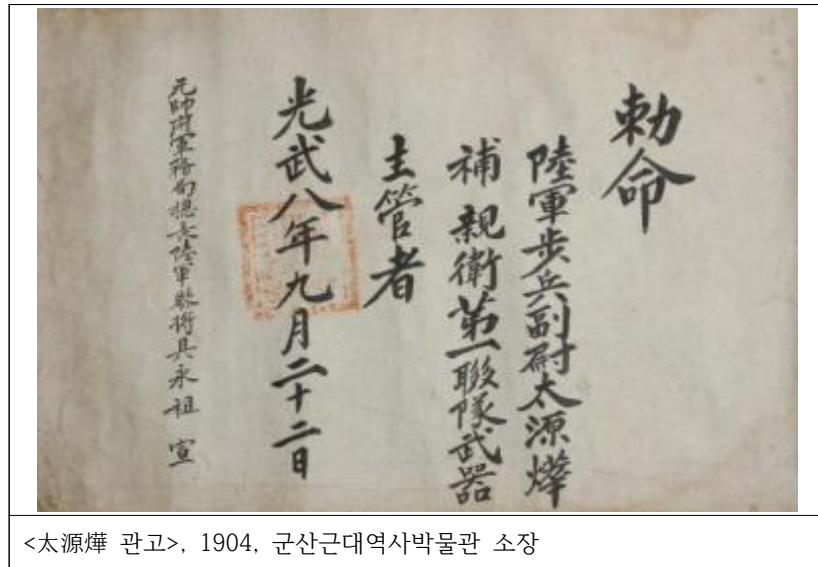 勅命
陸軍歩兵副尉太源燁
補親衛第一聯隊武器
主管者
光武八年九月二十二日
元帥府軍務局摠長陸軍叅將具永祖 宣
<太源燁 관고>, 1904, 군산근대역사박물관 소장